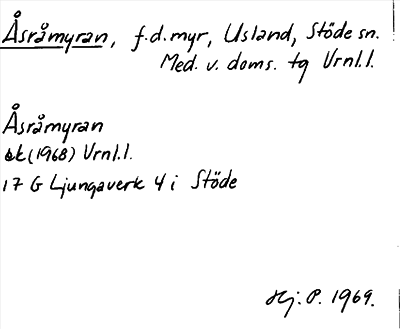 Åsråmyran, f.d. myr, Usland, Stöde sn.
Med. v. doms. tg Vrnl.l.
Åsråmyran
ek (1968) Vrnl.l.
17 G Ljungaverk 4 i Stöde
Hj. P. 1969.